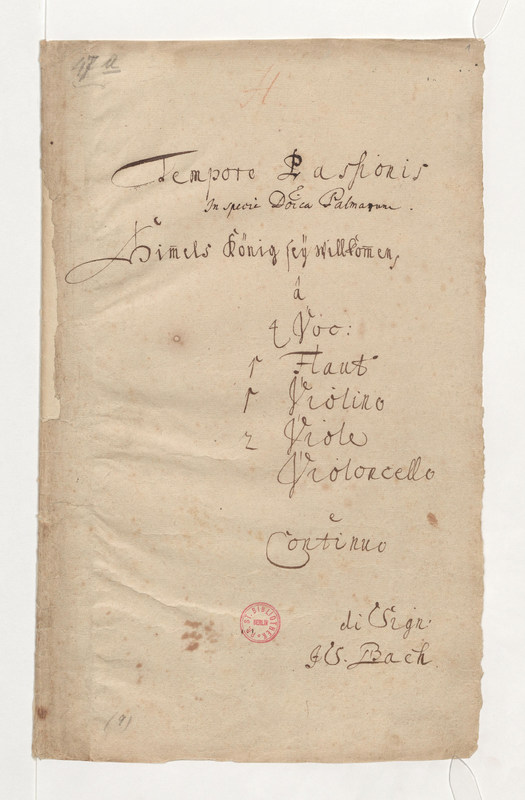 17 a
H
Tempore Passionis
In specie Doica Palmarum.
Him̄els König seÿ willkom̄en,
â
4 Voc:
1 Flaut
1 Violino
2 Viole
Violoncello
e
Continuo
di Sign:
J S. Bach
ST. BIBLIOTHEK
BERLIN
(9)